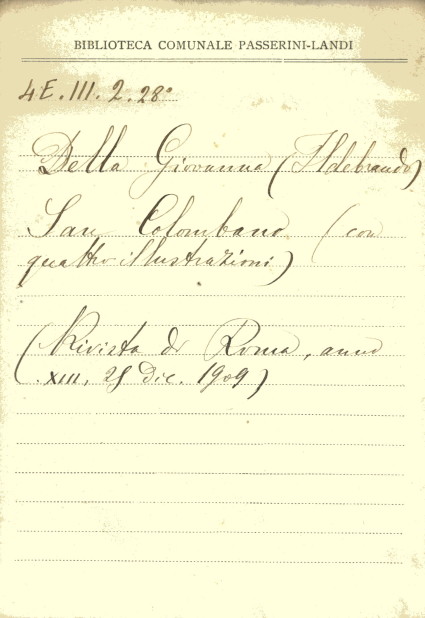 BIBLIOTECA COMUNALE PASSERINI-LANDI
4E.III.2.28°
Della Giovanna (Ildebrando)
San Colombano (con
quattro illustrazioni)
(Rivista di Roma, anno
XIII, 25 Dic. 1909)